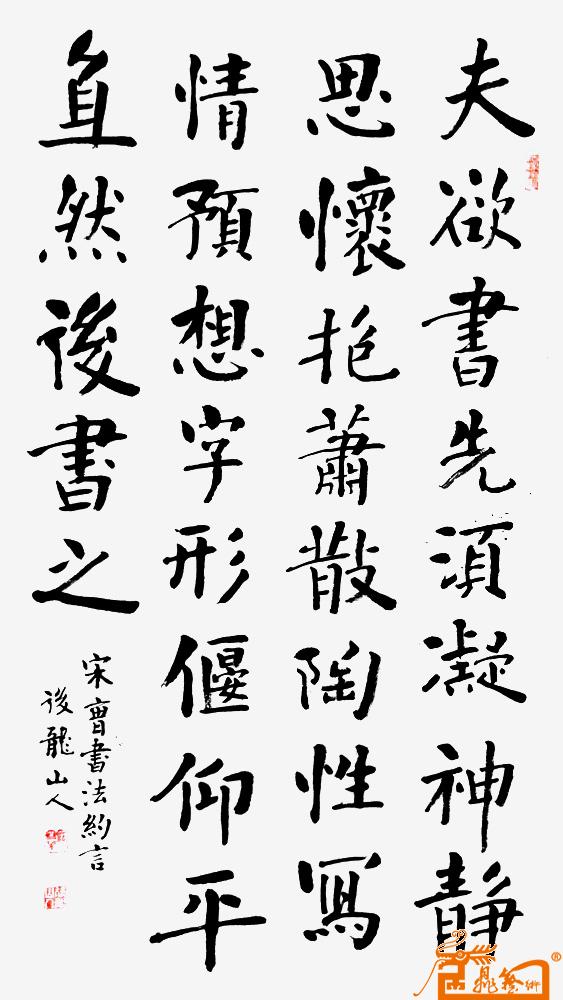 夫欲書先須凝神靜
思懷抱蕭散陶性寫
情預想字形偃仰平
直然後書之
宋曹書法約言
後龍山人